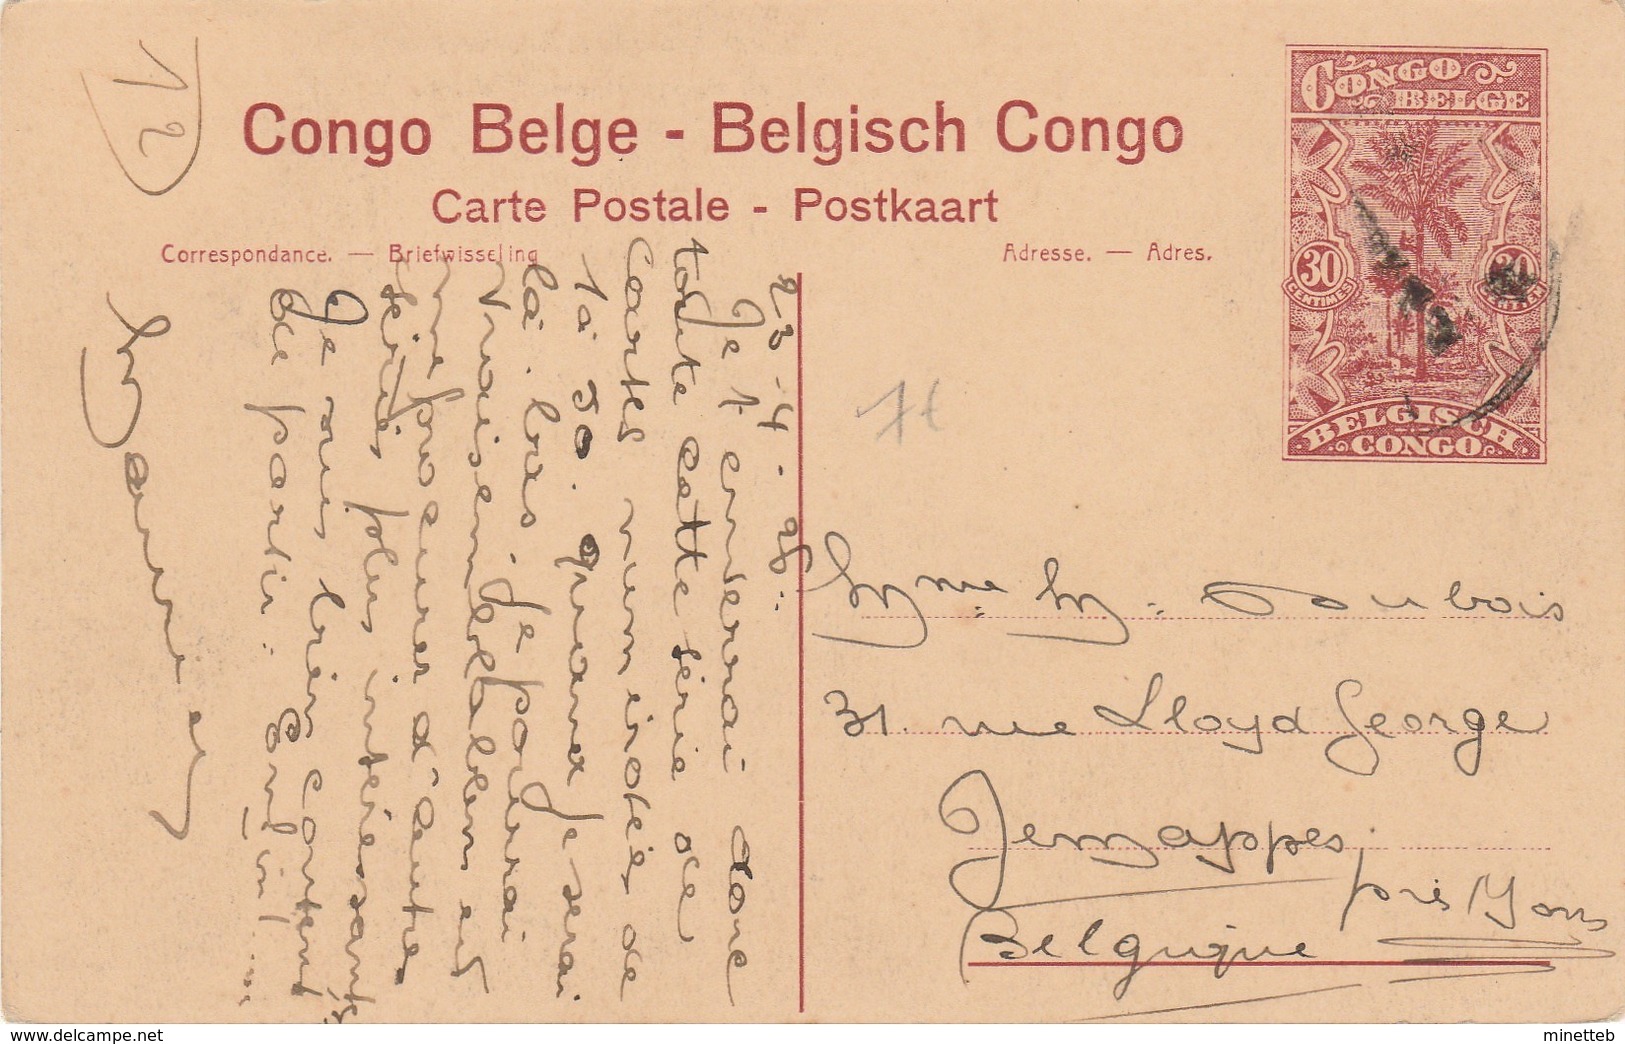 12
Congo Belge - Belgisch Congo
Carte Postale - Postkaart
Correspondance. — Briefwisseling
Adresse. — Adres.
CONGO
BELGE
30
CENTIMES
30
BELGISCH
CONGO
23-4-26.
Je t'enverrai donc
toute cette série de
cartes numérotées de
1 à 50. quand je serai
là-bas. Je pourrai
vraisemblablement
me procurer d'autres
séries plus intéressantes
Je suis bien content
de partir. Enfin!
Mme M. Dubois
31. rue Lloyd George
Jemappes,
près Mons
Belgique
delcampe.net
minetteb